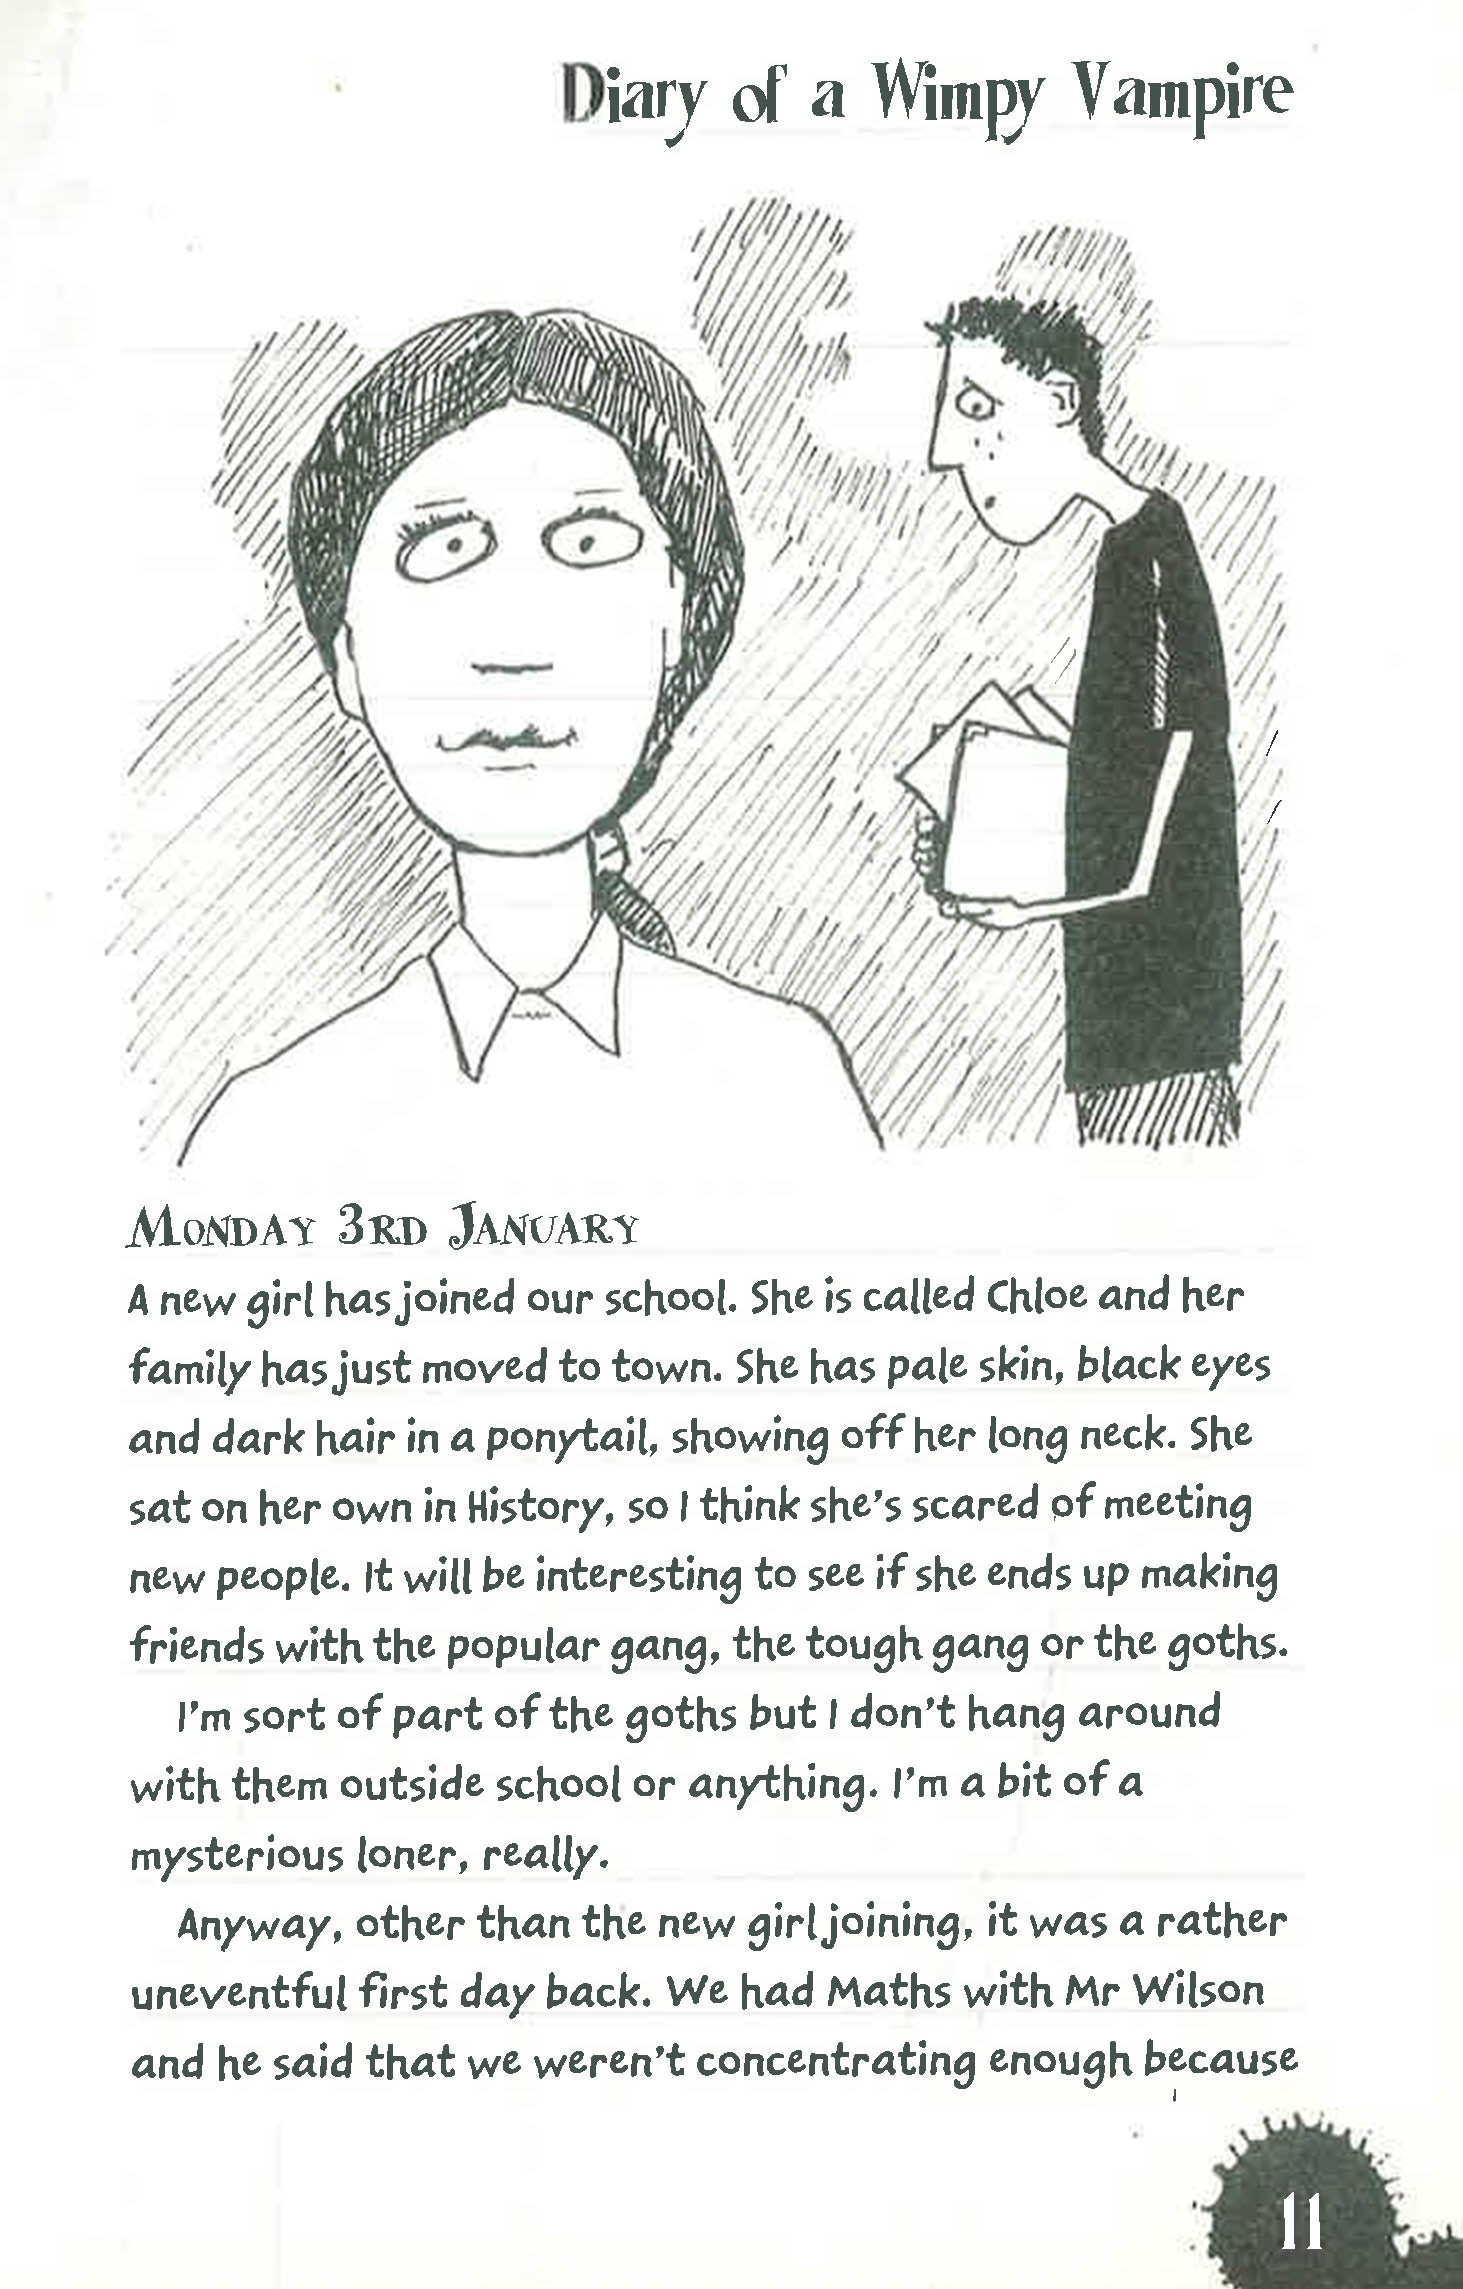 Diary of a Wimpy Vampire
Monday 3rd January
A new girl has joined our school. She is called Chloe and her
family has just moved to town. She has pale skin, black eyes
and dark hair in a ponytail, showing off her long neck. She
sat on her own in History, so I think she's scared of meeting
new people. It will be interesting to see if she ends up making
friends with the popular gang, the tough gang or the goths.
I'm sort of part of the goths but I don't hang around
with them outside school or anything. I'm a bit of a
mysterious loner, really.
Anyway, other than the new girl joining, it was a rather
uneventful first day back. We had Maths with Mr Wilson
and he said that we weren't concentrating enough because
11